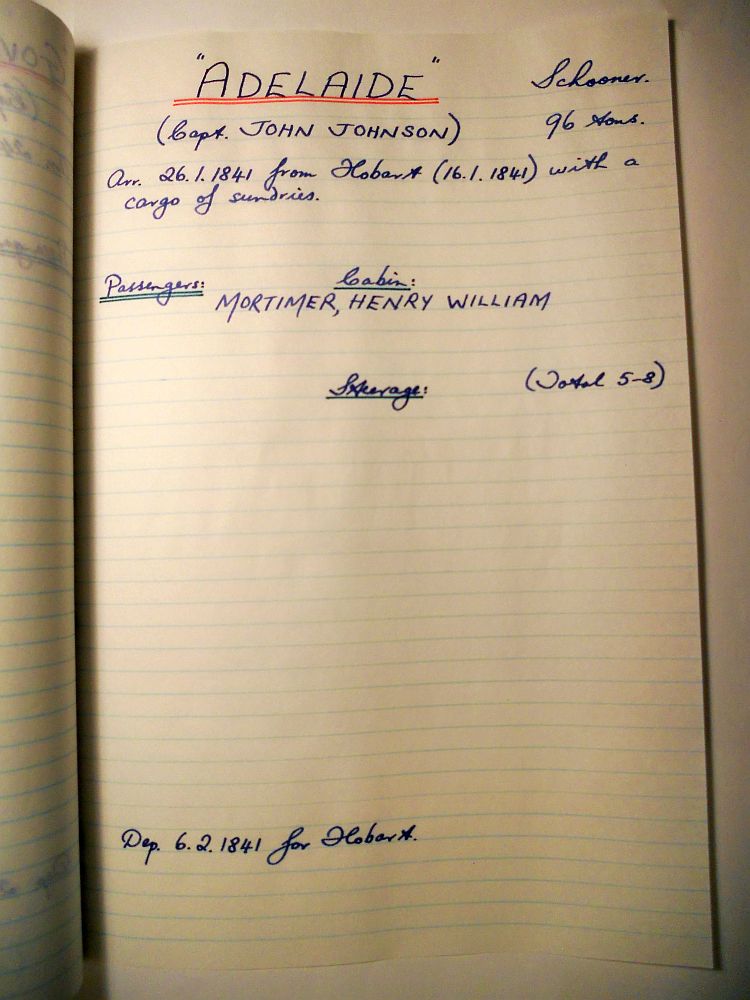 "ADELAIDE" Schooner.
(Capt. JOHN JOHNSON) 96 tons.
Arr. 26.1.1841 from Hobart (16.1.1841) with a
cargo of sundries.
Passengers: Cabin:
MORTIMER, HENRY WILLIAM
Steerage: (Total 5-8)
Dep. 6.2.1841 for Hobart.